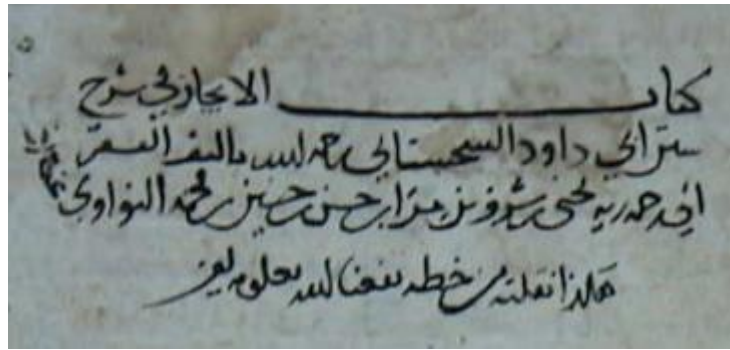 كتاب الايجاز في شرح
سنن ابي داود السجستاني رحمه الله تاليف الفقير
الى رحمه ربه يحيى بن شرف بن مرا بن حسن بن حسين بن محمد النواوي
هكذا نقلته من خطه نفعنا الله بعلومه